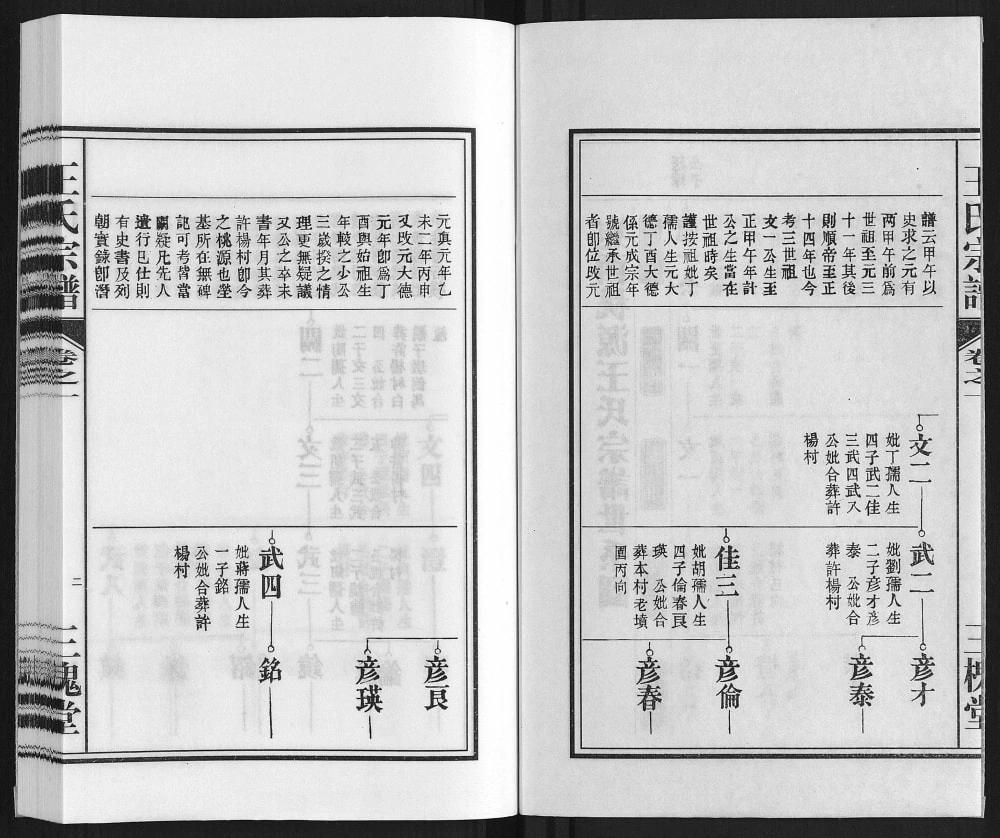 王氏宗譜
卷之一
三槐堂
譜云甲午以
史求之元有
两甲午前爲
世祖至元三
十一年其後
則順帝至正
十四年也今
考三世祖
文一公生至
正甲午年計
公之生當在
世祖時矣
謹按祖妣丁
孺人生元大
德丁酉大德
係元成宗年
號繼承世祖
者卽位攺元
文二
妣丁孺人生
四子武二佳
三武四武又
公妣合葬許
楊村
武二
妣劉孺人生
二子彦才彦
泰　公妣合
葬許楊村
佳三
妣胡孺人生
四子倫春良
瑛　公妣合
葬本村老墳
園丙向
彦才
彦泰
彦倫
彦春
元真元年乙
未二年丙申
又攺元大德
元年卽爲丁
酉與始祖生
年較之少公
三歲揆之情
理更無疑議
又公之卒未
書年月其葬
許楊村卽今
之桃源也塋
基所在無碑
記可考嘗當
闕疑凡先人
遺行已仕則
有史書及列
朝實錄卽潛
武四
妣蔣孺人生
一子銘
公妣合葬許
楊村
彦良
彦瑛
銘
王氏宗譜
卷之一
二
三槐堂